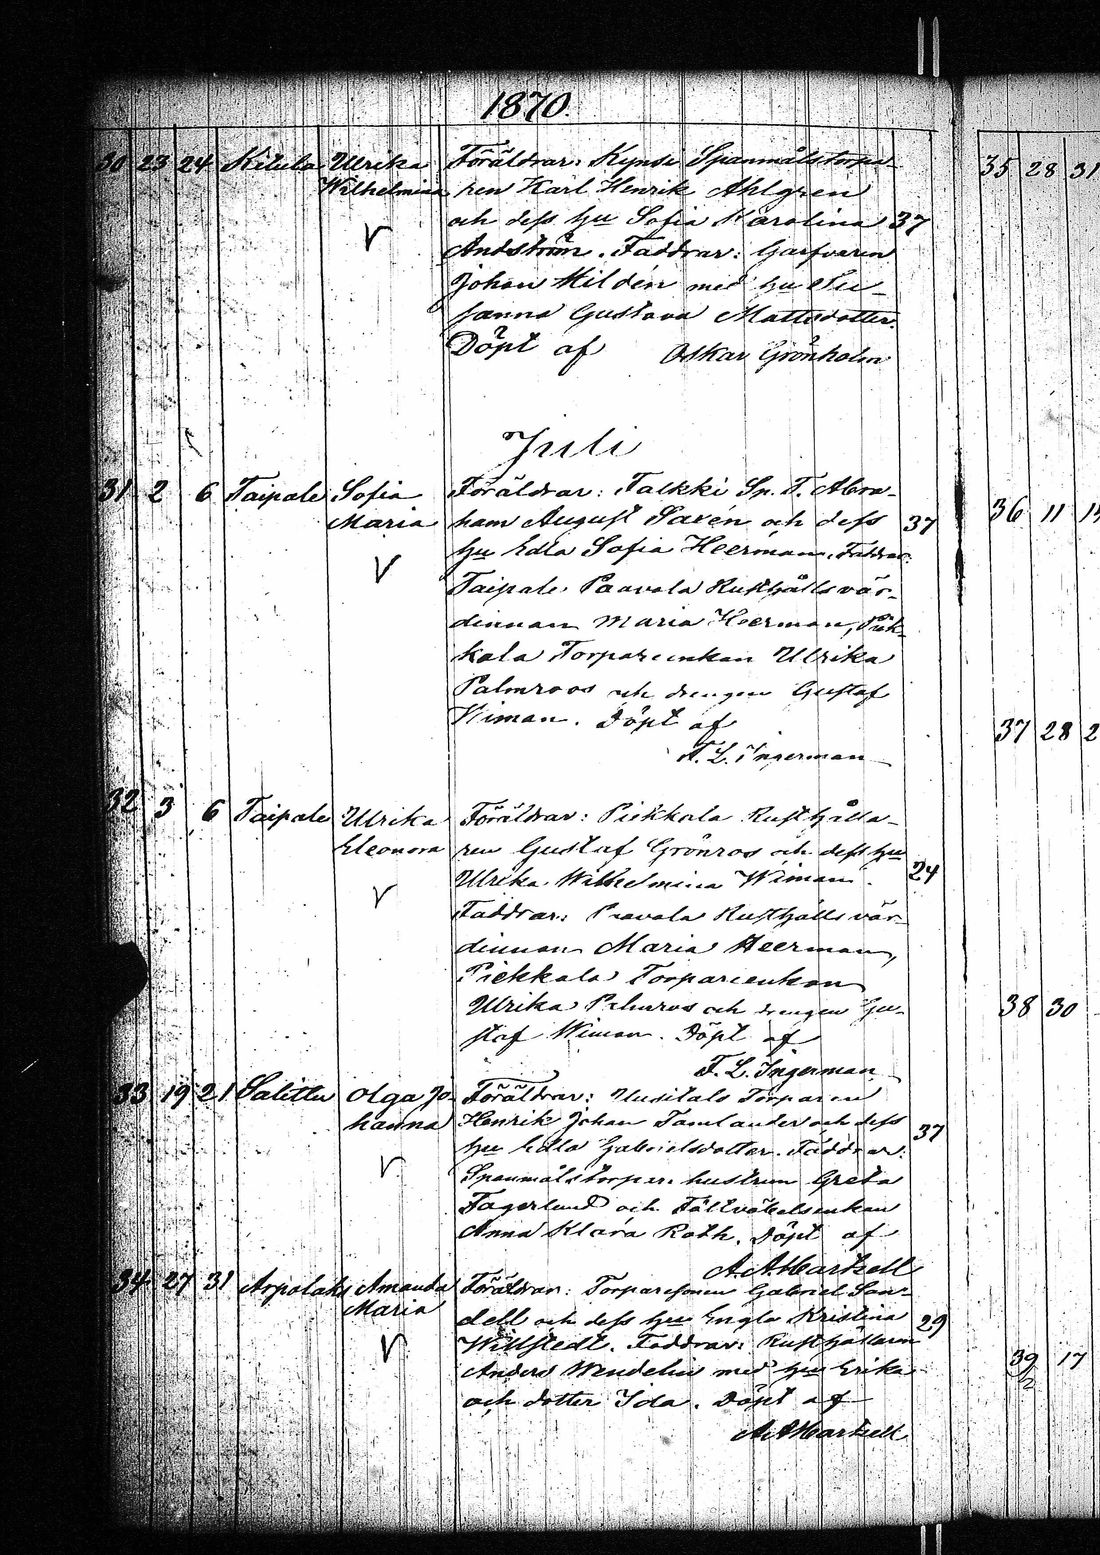 1870.
30 23 24 Kitula Ulrika Föräldrar: Kynsi Spanmålstorpa-
Wilhelmina ren Karl Henrik Ahlgren
och dess hu Sofia Karolina 37
Andström. Faddrar: Garfvaren
Johan Hildén med hu Su-
sanna Gustava Mattsdotter.
Döpt af Oskar Grönholm
Juli
31 2 6 Taipale Sofia Föräldrar: Talkki Sp. T. Abra-
Maria ham August Savén och dess 37
hu Edla Sofia Heerman. Faddrar:
Taipale Paavola Rusthållsvär-
dinnan Maria Heerman, Piek-
kala Torpareenkan Ulrika
Palmroos och drengen Gustaf
Wiman. Döpt af
F. L. Ingerman
32 3 6 Taipale Ulrika Föräldrar: Piekkala Rusthålla-
Eleonora ren Gustaf Grönroos och dess hu
Ulrika Wilhelmina Wiman. 24
Faddrar: Paavola Rusthållsvär-
dinnan Maria Heerman,
Piekkala Torpareenkan
Ulrika Palmroos och drengen Gu-
staf Wiman. Döpt af
F. L. Ingerman
33 19 21 Salittu Olga Jo- Föräldrar: Uusitalo Torparen
hanna Henrik Johan Tamlander och dess 37
hu Edla Gabrielsdotter. Faddrar:
Spanmålstorpare hustrun Greta
Fagerlund och enkan
Anna Klara Roth. Döpt af
A. A. Markell
34 27 31 Arpalaks Amanda Föräldrar: Torparesonen Gabriel San-
Maria dell och dess hu Engla Kristina 29
Willstedt. Faddrar: Rusthållaren
Anders Wendelin med hu Erika
och dotter Ida. Döpt af
A. A. Markell
35 28 31
36 11
37 28 2
38 30
39 17